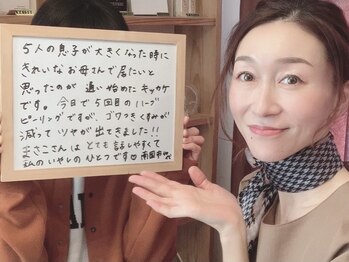 5人の息子が大きくなった時に
きれいなお母さんで居たいと
思ったのが通い始めたキッカケ
です。今日で5回目のハーブ
ピーリングですが、ゴワつきくすみが
減ってツヤが出てきました!!
まさこさんはとても話しやすくて
私のいやしのひとつです♡南国市